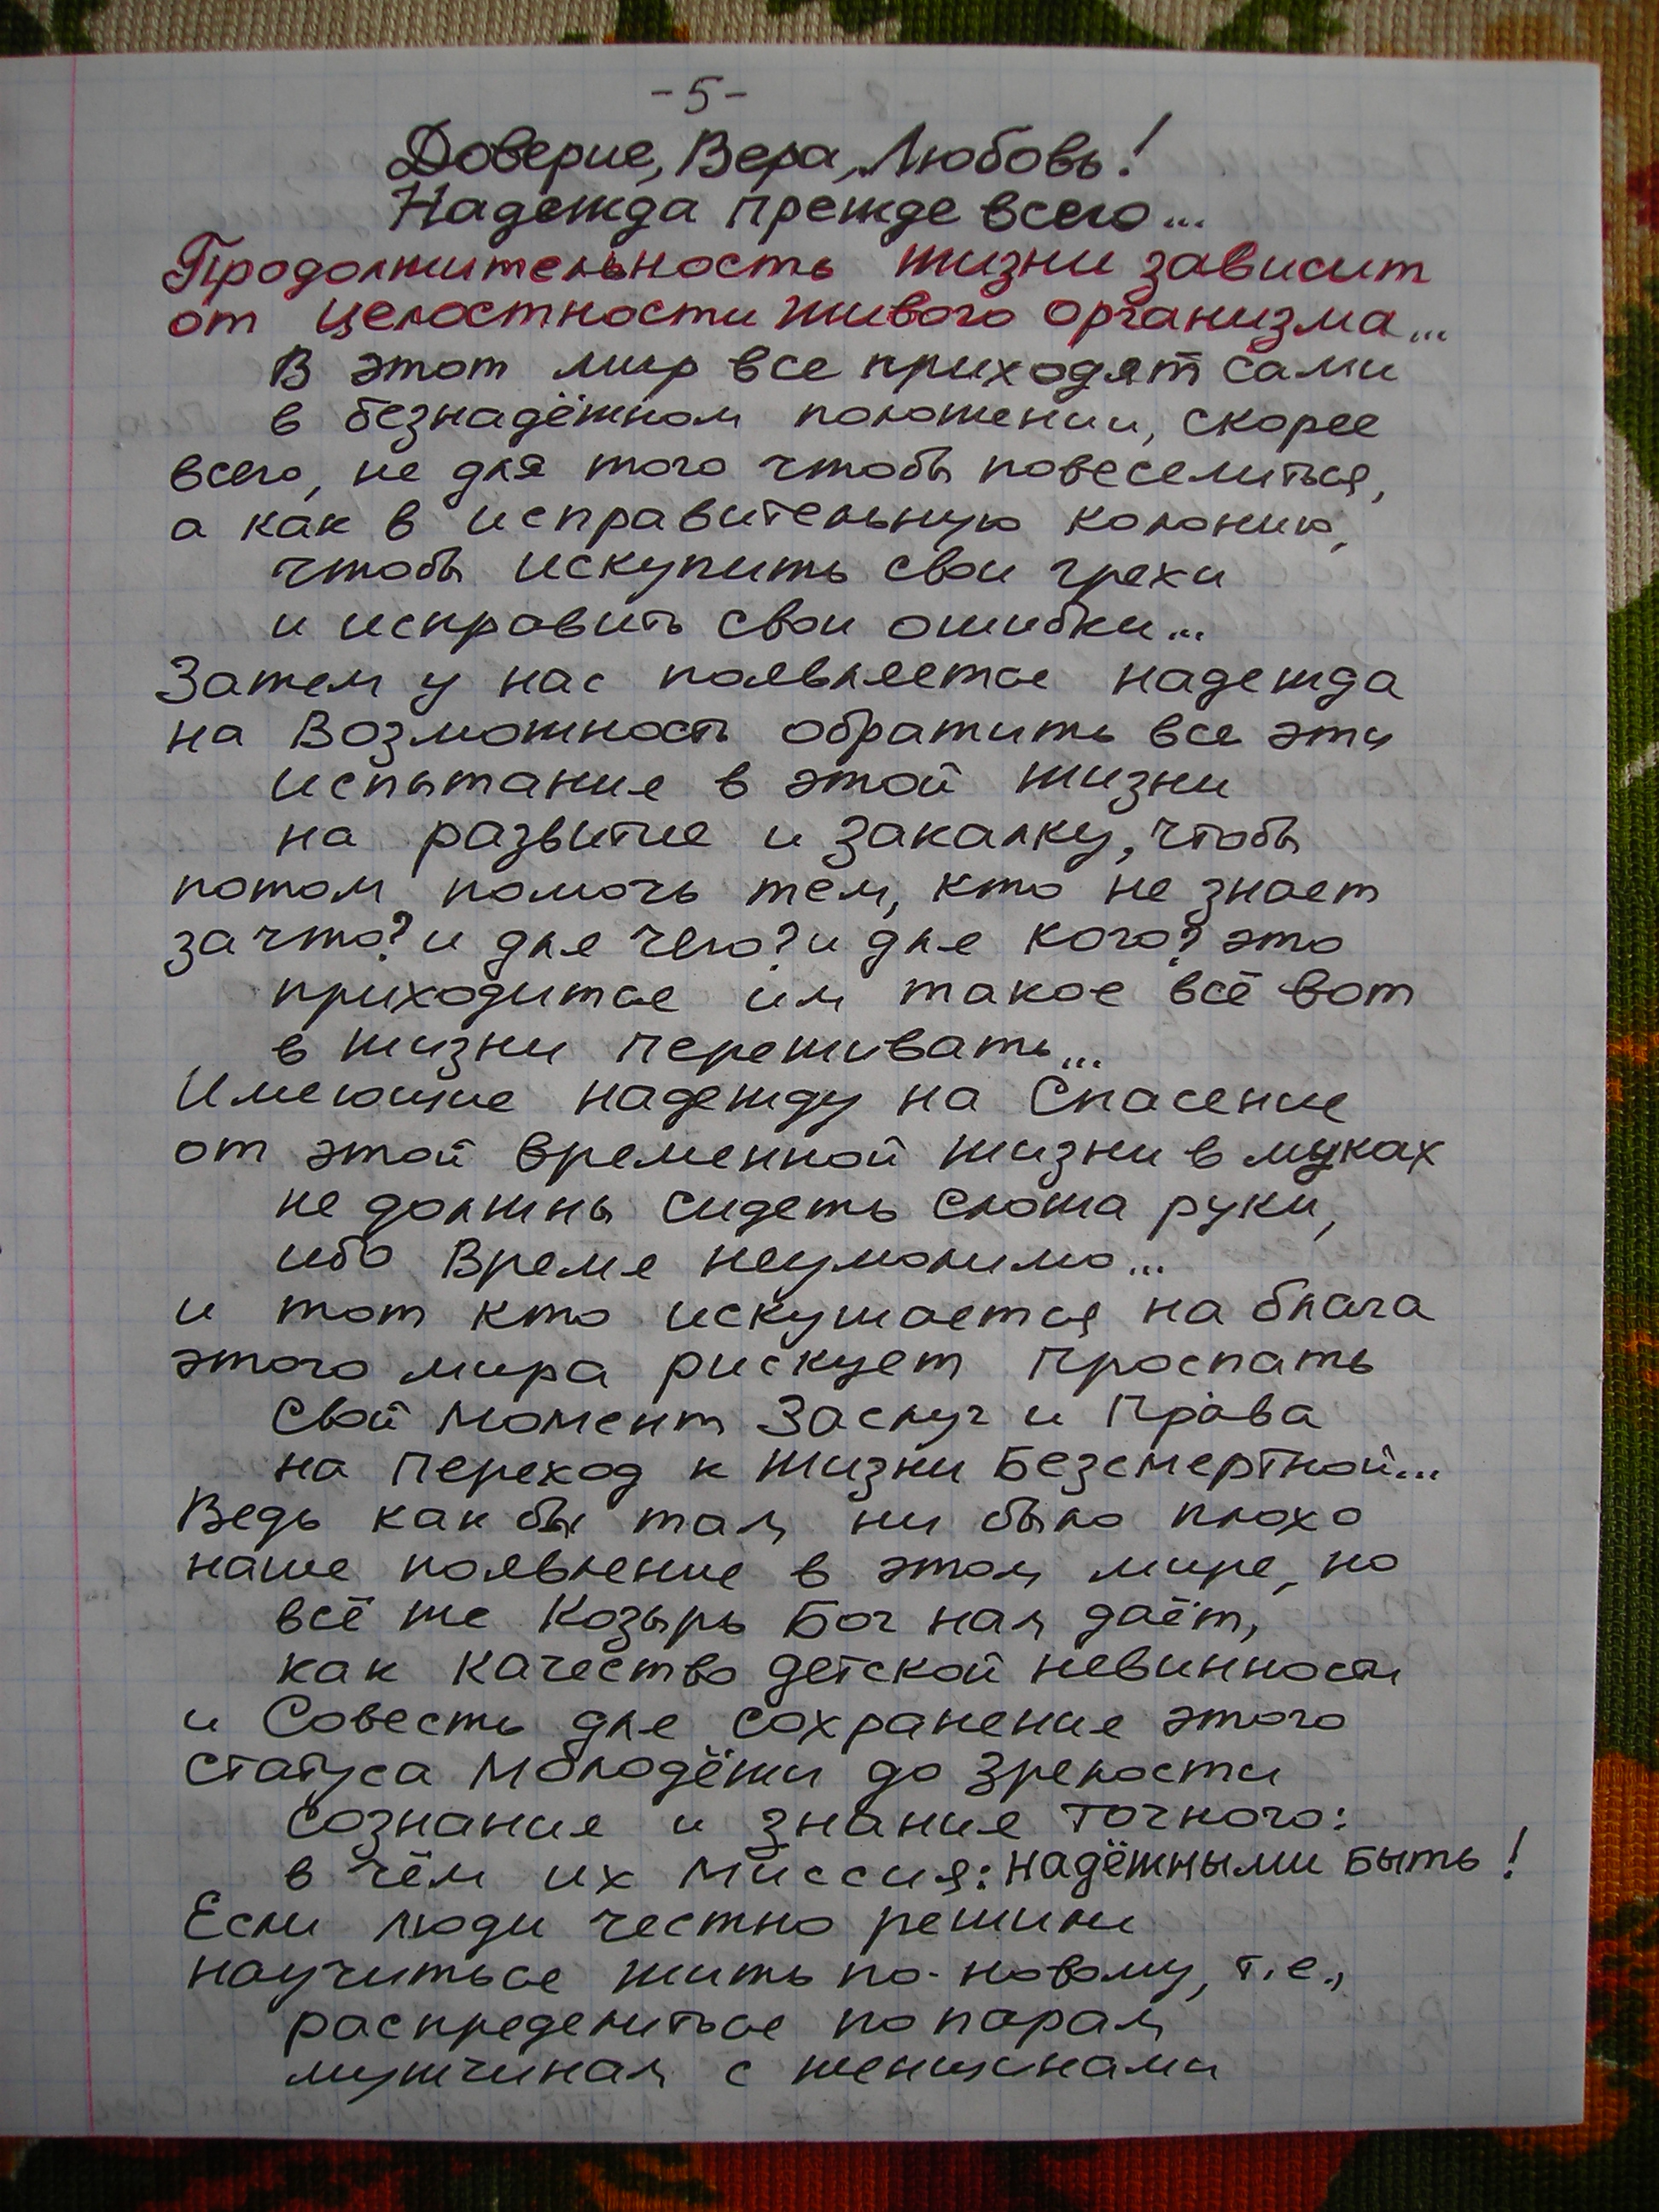 -5-
Доверие, Вера, Любовь!
Надежда прежде всего...
Продолжительность жизни зависит
от целостности живого организма...
В этот мир все приходят сами
в безнадёжном положении, скорее
всего, не для того чтобы повеселиться,
а как в исправительную колонию,
чтобы искупить свои грехи
и исправить свои ошибки...
Затем у нас появляется надежда
на Возможность обратить все эти
испытания в этой жизни
на развитие и закалку, чтобы
потом помочь тем, кто не знает
за что? и для чего? и для кого? это
приходится им такое всё вот
в жизни переживать...
Имеющие надежду на Спасение
от этой временной жизни в муках
не должны сидеть сложа руки,
ибо Время неумолимо...
и тот кто искушается на блага
этого мира рискует проспать
свой момент Заслуг и Права
на переход к Жизни Безсмертной...
Ведь как бы там ни было плохо
наше появление в этом мире, но
всё же Козырь Бог нам даёт,
как качество детской невинности
и Совесть для сохранения этого
статуса молодёжи до зрелости
сознания и знания точного:
в чём их миссия: надёжными быть!
Если люди честно решили
научиться жить по-новому, т.е.,
распределиться по парам
мужчинам с женщинами